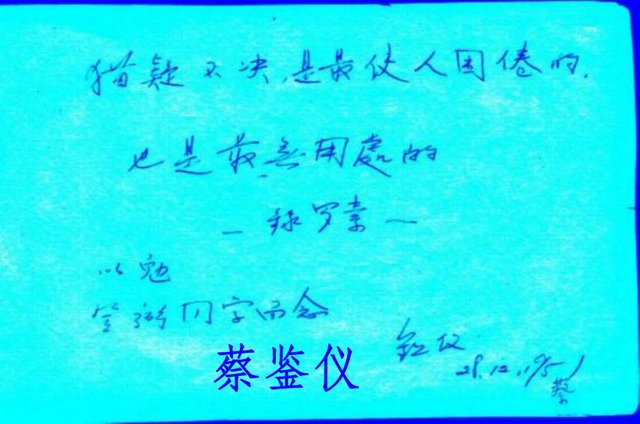 猶疑不决,是最使人困倦的,
也是最無用處的
— 錄罗素 —
以勉
同学
鉴仪
29.12.1951
蔡
蔡鉴仪